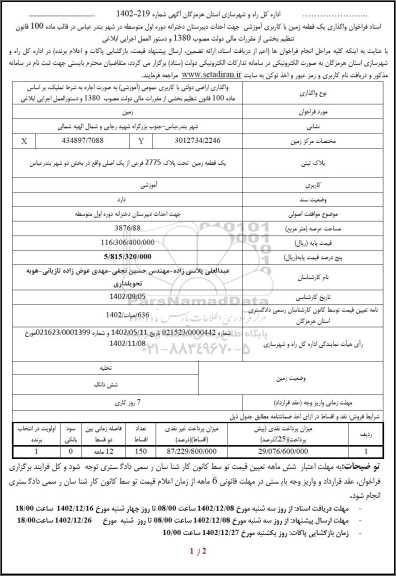 اداره کل راه و شهرسازی استان هرمزگان آگهی شماره 219-1402
اسناد فراخوان واگذاری یک قطعه زمین با کاربری آموزشی جهت احداث دبیرستان دخترانه دوره اول متوسطه در شهر بندر عباس در قالب ماده 100 قانون تنظیم بخشی از مقررات مالی دولت مصوب 1380 و دستور العمل اجرایی ابلاغی
با عنایت به اینکه کلیه مراحل انجام فراخوان ها (اعم از دریافت اسناد، ارائه تضمین، ارسال پیشنهاد قیمت، بازگشایی پاکات و اعلام برنده) در اداره کل راه و شهرسازی استان هرمزگان به صورت الکترونیکی در سامانه تدارکات الکترونیکی دولت (ستاد) برگزار می گردد، متقاضیان محترم بایستی جهت ثبت نام در سامانه مذکور و دریافت نام کاربری و رمز عبور و اخذ توکن به سایت www.setadiran.ir مراجعه فرمایند.
نوع واگذاری
واگذاری اراضی دولتی با کاربری عمومی (آموزشی) به صورت اجاره به شرط تملیک، بر اساس ماده 100 قانون تنظیم بخشی از مقررات مالی دولت مصوب 1380 و دستورالعمل اجرایی ابلاغی
مورد فراخوان
زمین
نشانی
شهر بندرعباس-جنوب بزرگراه شهید رجایی و شمال الهیه شمالی
مختصات مرکز زمین
3012734/2246 Y 434897/7088 X
پلاک ثبتی
یک قطعه زمین تحت پلاک 2775 فرعی از یک اصلی واقع در بخش دو شهر بندرعباس
کاربری
آموزشی
وضعیت سند
دارد
موضوع موافقت اصولی
جهت احداث دبیرستان دخترانه دوره اول متوسطه
مساحت عرصه (متر مربع)
3876/88
قیمت پایه (ریال)
116/306/400/000
پنج درصد قیمت پایه(ریال)
5/815/320/000
نام کارشناسان
عبدالعلی پلاسی زاده-مهندس حسین نجفی-مهدی عوض زاده تازیانی-هویه تحویلداری
تاریخ کارشناسی
1402/09/05
نامه تعیین قیمت توسط کانون کارشناسان رسمی دادگستری استان هرمزگان
رأی هیأت نمایندگی اداره کل راه و شهرسازی
شماره 021523/0000442 تاریخ 1402/05/11 و شماره 021623/0001399مورخ 1402/11/08
وضعیت زمین
تخلیه
شش دانگ
مهلت زمانی واریز وجه (عقد قرارداد)
7 روز کاری
شرایط فروش: نقد و اقساط در ازای اخذ ضمانتنامه مطابق جدول ذیل
ردیف
میزان پرداخت نقدی (پیش پرداخت)(25٪درصد)
میزان پرداخت غیر نقدی (اقساط)(درصد)
تعداد اقساط
فاصله زمانی بین دو قسط
سود بانکی
اولویت در انتخاب برنده
1
29/076/600/000
87/229/800/000
150
12 ماهه
0
1
توضیحات:به مهلت اعتبار شش ماهه تعیین قیمت توسط کانون کارشناسان رسمی دادگستری توجه شود و کل فرایند برگزاری فراخوان، عقد قرارداد و واریز وجه بایستی در مهلت قانونی 6 ماهه از زمان اعلام قیمت توسط کانون کارشناسان رسمی دادگستری انجام شود.
- مهلت دریافت اسناد: از روز سه شنبه مورخ 1402/12/08 ساعت 08/00 تا روز چهار شنبه مورخ 1402/12/16 ساعت 18/00
- مهلت ارسال پیشنهاد: از روز سه شنبه مورخ 1402/12/08 ساعت 08/00 تا روز شنبه مورخ 1402/12/26 ساعت 18/00
- زمان بازگشایی پاکات: روز یکشنبه مورخ 1402/12/27 ساعت 10/00
1 از 2